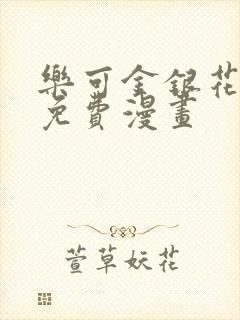 樂可金銀花
免費漫畫
萱草妖花